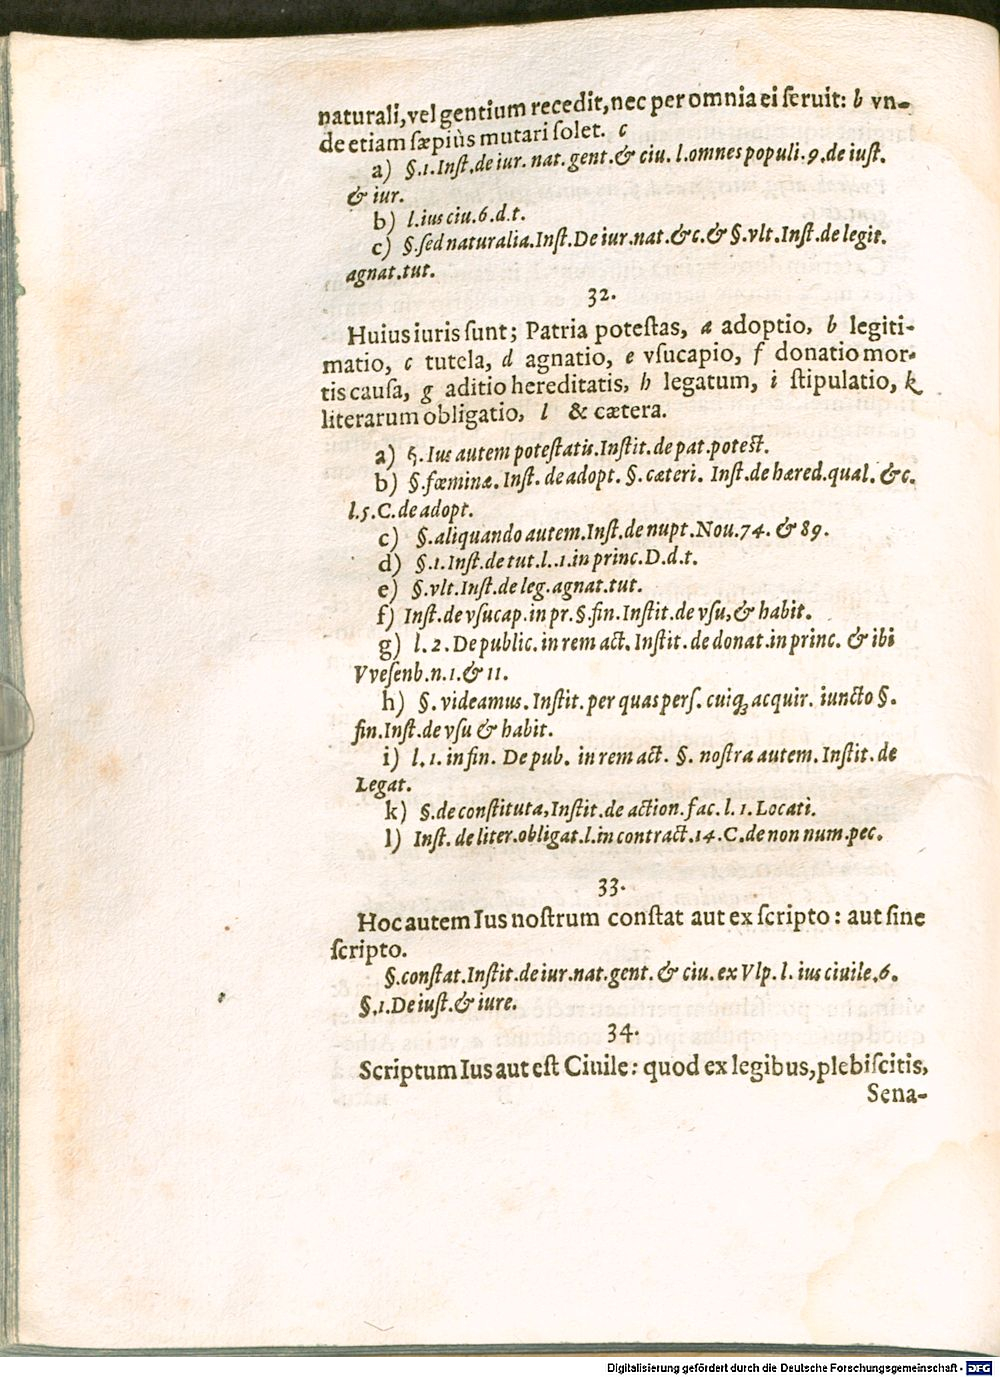 naturali, vel gentium recedit, nec per omnia ei ſeruit: b vn-
de etiam ſæpiùs mutari ſolet. c
a) §.1. Inſt. de iur. nat. gent. & ciu. l. omnes populi. 9. de iuſt.
& iur.
b) l. ius ciu. 6. d. t.
c) §. ſed naturalia. Inſt. De iur. nat. &c. & §. vlt. Inſt. de legit.
agnat. tut.
32.
Huius iuris ſunt; Patria poteſtas, a adoptio, b legiti-
matio, c tutela, d agnatio, e vſucapio, f donatio mor-
tis cauſa, g aditio hereditatis, h legatum, i ſtipulatio, k
literarum obligatio, l & cætera.
a) §. Ius autem poteſtatis. Inſtit. de pat. poteſt.
b) §. fœminæ. Inſt. de adopt. §. cæteri. Inſt. de hæred. qual. &c.
l. 5. C. de adopt.
c) §. aliquando autem. Inſt. de nupt. Nou. 74. & 89.
d) §. 1. Inſt. de tut. l. .1. in princ. D. d. t.
e) §. vlt. Inſt. de leg. agnat. tut.
f) Inſt. de vſucap. in pr. §. fin. Inſtit. de vſu, & habit.
g) l. 2. De public. in rem act. Inſtit. de donat. in princ. & ibi
Vveſenb. n. 1. & 11.
h) §. videamus. Inſtit. per quas perſ. cuiq; acquir. iuncto §.
fin. Inſt. de vſu & habit.
i) l. 1. in fin. De pub. in rem act. §. noſtra autem. Inſtit. de
Legat.
k) §. de conſtituta, Inſtit. de action. fac. l. 1. Locati.
l) Inſt. de liter. obligat. l. in contract. 14. C. de non num. pec.
33.
Hoc autem Ius noſtrum conſtat aut ex ſcripto: aut ſine
ſcripto.
§. conſtat. Inſtit. de iur. nat. gent. & ciu. ex Vlp. l. ius ciuile. 6.
§. 1. De iuſt. & iure.
34.
Scriptum Ius aut eſt Ciuile: quod ex legibus, plebiſcitis,
Sena-
Digitalisierung gefördert durch die Deutsche Forschungsgemeinschaft - DFG